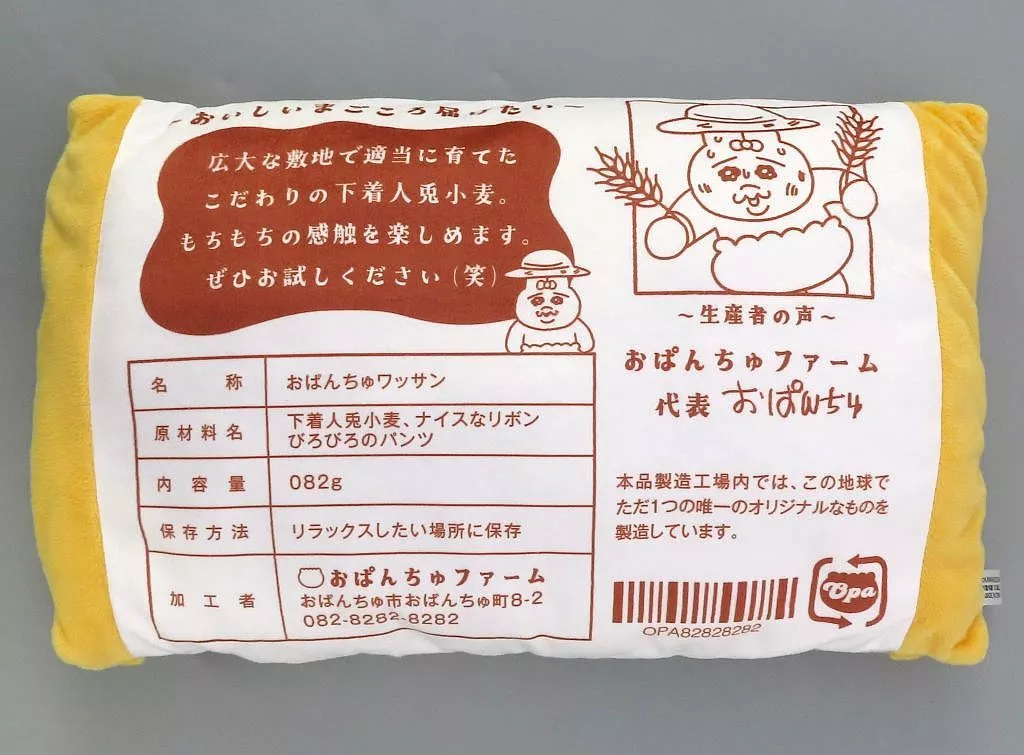 ~おいしいまごころ届けたい~
広大な敷地で適当に育てた
こだわりの下着人兎小麦。
もちもちの感触を楽しめます。
ぜひお試しください(笑)
名称 おぱんちゅワッサン
原材料名 下着人兎小麦、ナイスなリボン
びろびろのパンツ
内容量 082g
保存方法 リラックスしたい場所に保存
加工者 おぱんちゅファーム
おぱんちゅ市おぱんちゅ町8-2
082-8282-8282
~生産者の声~
おぱんちゅファーム
代表 おぱんちゅ
本品製造工場内では、この地球で
ただ1つの唯一のオリジナルなものを
製造しています。
OPA82828282
Opa